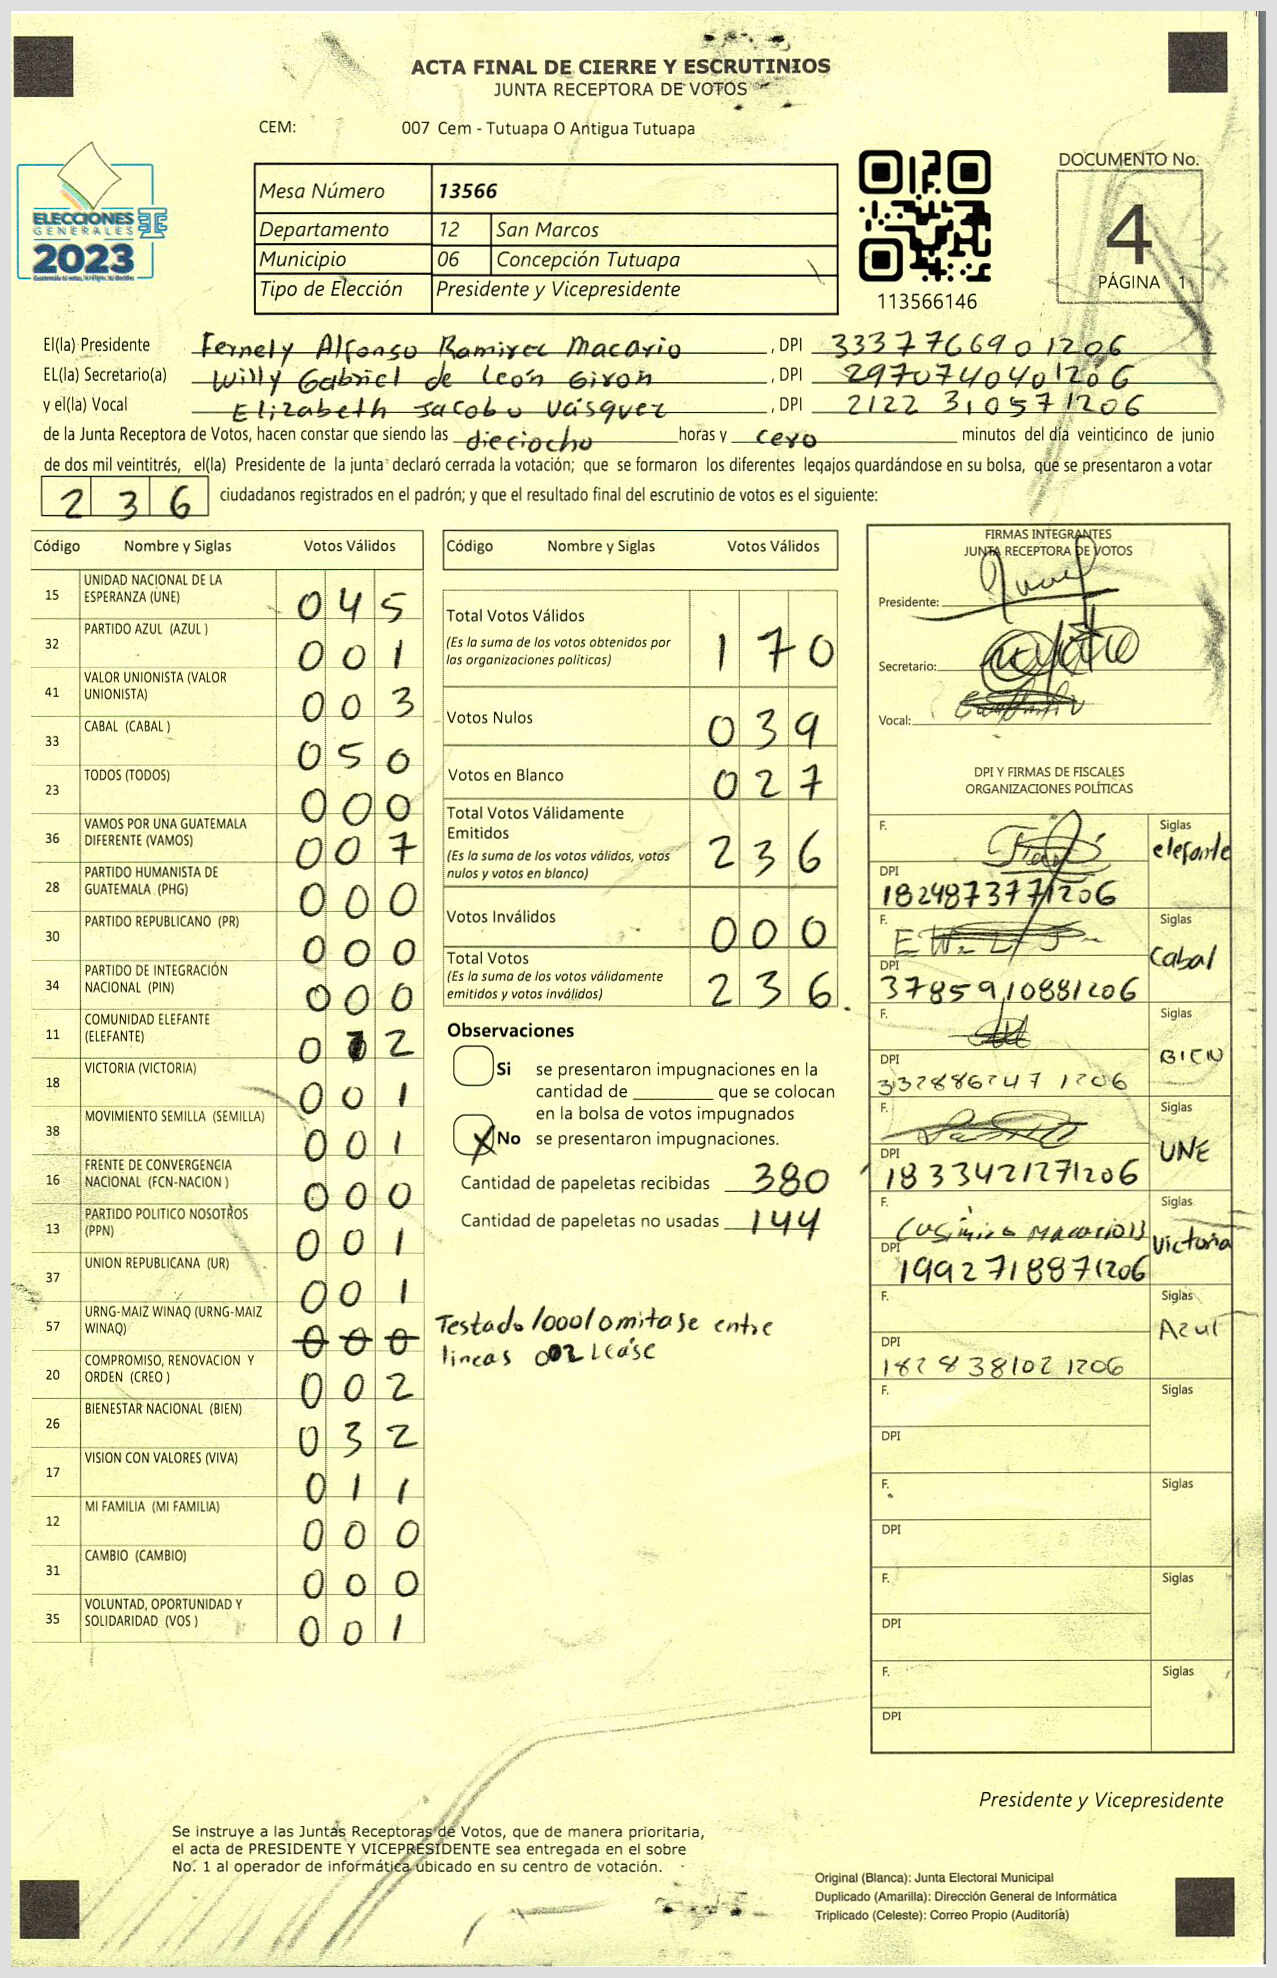 ACTA FINAL DE CIERRE Y ESCRUTINIOS
JUNTA RECEPTORA DE VOTOS
CEM: 007 Cem - Tutuapa O Antigua Tutuapa
ELECCIONES
GENERALES
2023
Mesa Número 13566
Departamento 12 San Marcos
Municipio 06 Concepción Tutuapa
Tipo de Elección Presidente y Vicepresidente
113566146
DOCUMENTO No.
4
PÁGINA 1
El(la) Presidente Fernely Alfonso Ramirez Macario , DPI 3337766901206
EL(la) Secretario(a) Willy Gabriel de León Giron , DPI 2970740401206
y el(la) Vocal Elizabeth Jacobo Vásquez , DPI 2122 310571206
de la Junta Receptora de Votos, hacen constar que siendo las dieciocho horas y cero minutos del día veinticinco de junio
de dos mil veintitrés, el(la) Presidente de la junta declaró cerrada la votación; que se formaron los diferentes legajos guardándose en su bolsa, que se presentaron a votar
236 ciudadanos registrados en el padrón; y que el resultado final del escrutinio de votos es el siguiente:
Código Nombre y Siglas Votos Válidos
15 UNIDAD NACIONAL DE LA ESPERANZA (UNE) 045
32 PARTIDO AZUL (AZUL ) 001
41 VALOR UNIONISTA (VALOR UNIONISTA) 003
33 CABAL (CABAL ) 050
23 TODOS (TODOS) 000
36 VAMOS POR UNA GUATEMALA DIFERENTE (VAMOS) 007
28 PARTIDO HUMANISTA DE GUATEMALA (PHG) 000
30 PARTIDO REPUBLICANO (PR) 000
34 PARTIDO DE INTEGRACIÓN NACIONAL (PIN) 000
11 COMUNIDAD ELEFANTE (ELEFANTE) 012
18 VICTORIA (VICTORIA) 001
38 MOVIMIENTO SEMILLA (SEMILLA) 001
16 FRENTE DE CONVERGENCIA NACIONAL (FCN-NACION ) 000
13 PARTIDO POLITICO NOSOTROS (PPN) 001
37 UNION REPUBLICANA (UR) 001
57 URNG-MAIZ WINAQ (URNG-MAIZ WINAQ) 000
20 COMPROMISO, RENOVACION Y ORDEN (CREO ) 002
26 BIENESTAR NACIONAL (BIEN) 032
17 VISION CON VALORES (VIVA) 011
12 MI FAMILIA (MI FAMILIA) 000
31 CAMBIO (CAMBIO) 000
35 VOLUNTAD, OPORTUNIDAD Y SOLIDARIDAD (VOS ) 001
Código Nombre y Siglas Votos Válidos
Total Votos Válidos 170
(Es la suma de los votos obtenidos por
las organizaciones políticas)
Votos Nulos 039
Votos en Blanco 027
Total Votos Válidamente
Emitidos 236
(Es la suma de los votos válidos, votos
nulos y votos en blanco)
Votos Inválidos 000
Total Votos 236.
(Es la suma de los votos válidamente
emitidos y votos inválidos)
Observaciones
Si se presentaron impugnaciones en la
cantidad de ________ que se colocan
en la bolsa de votos impugnados
X No se presentaron impugnaciones.
Cantidad de papeletas recibidas 380
Cantidad de papeletas no usadas 144
Testado /000/ omitase entre
lineas 002 Léase
FIRMAS INTEGRANTES
JUNTA RECEPTORA DE VOTOS
Presidente:
Secretario:
Vocal:
DPI Y FIRMAS DE FISCALES
ORGANIZACIONES POLÍTICAS
F. Siglas elefante
DPI 1824873771206
F. Siglas Cabal
DPI 3785910881206
F. Siglas BIEN
DPI 332886247 1206
F. Siglas UNE
DPI 1833421271206
F. Siglas Victoria
DPI 1992718871206
F. Siglas Azul
DPI 1828381021206
F. Siglas
DPI
F. Siglas
DPI
F. Siglas
DPI
F. Siglas
DPI
Presidente y Vicepresidente
Se instruye a las Juntas Receptoras de Votos, que de manera prioritaria,
el acta de PRESIDENTE Y VICEPRESIDENTE sea entregada en el sobre
No. 1 al operador de informática ubicado en su centro de votación.
Original (Blanca): Junta Electoral Municipal
Duplicado (Amarilla): Dirección General de Informática
Triplicado (Celeste): Correo Propio (Auditoría)